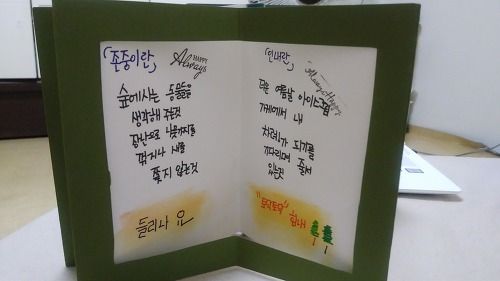 「존중이란」
HAPPY
Always
숲에서는 동물들을
생각해 주는것
장난으로 나뭇가지를
꺾거나 새를
쫓지 않는것
들리나 요
「인내란」
Always Happy
더운 여름날 아이스크림
가게에서 내
차례가 되기를
기다리며 줄서
있는것
"토닥토닥" 힘내